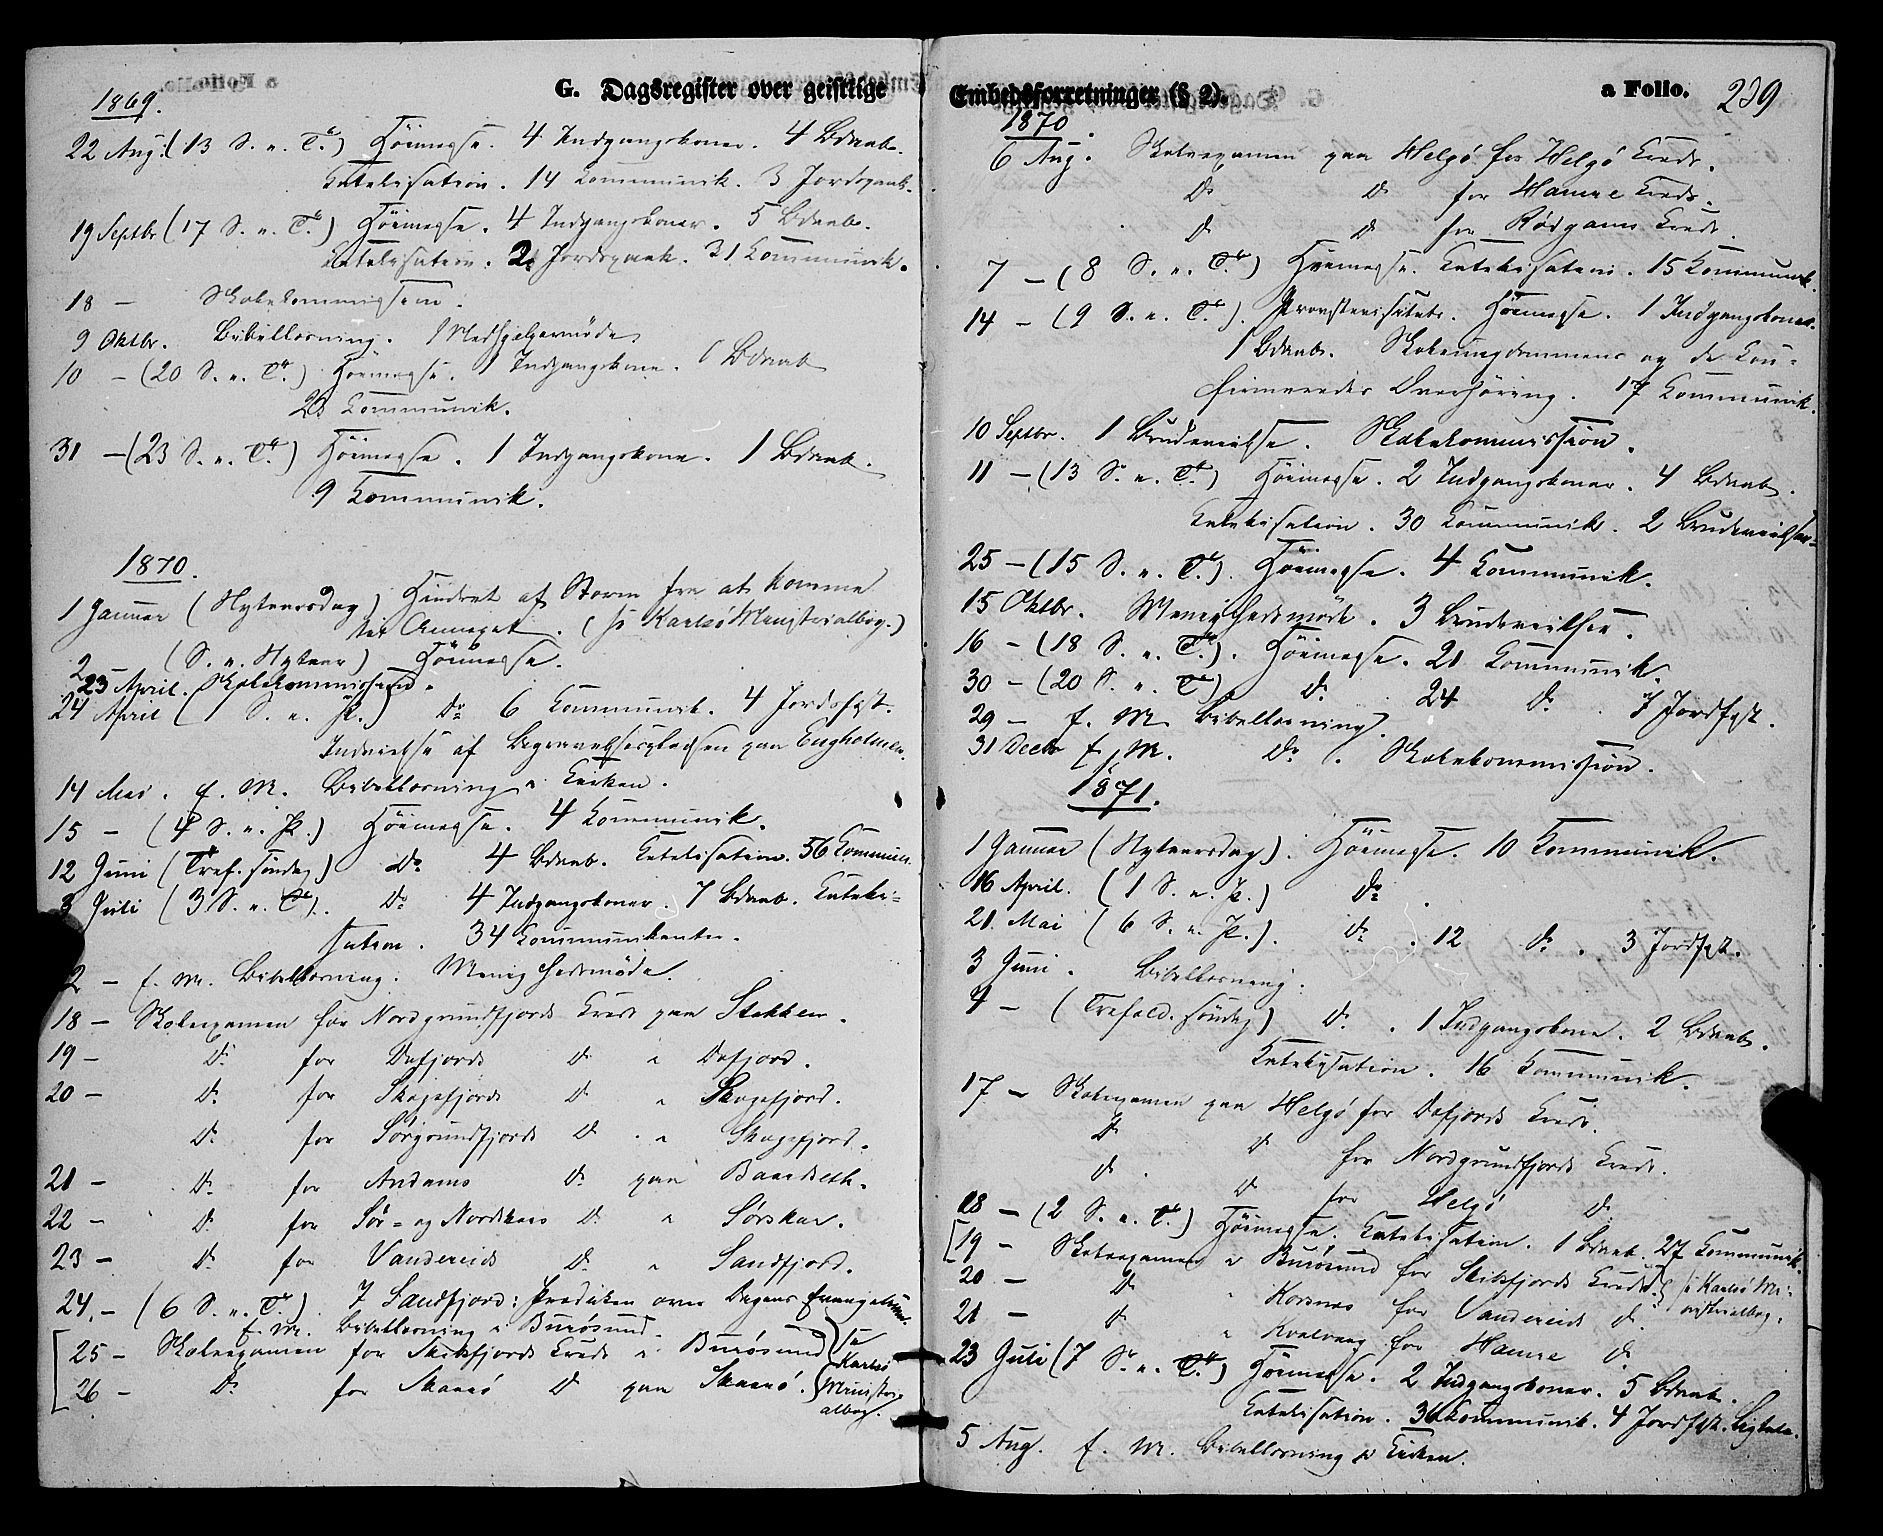 G. Dagsregister over geistlige
1869.
22 Aug. (13 S. e. Tr.) Høimesse. 4 Indgangskoner. 4 Bdaab.
Katekisation. 14 Kommunik. 3 Jordspaak.
19 Septbr (17 S. e. Tr.) Høimesse. 4 Indgangskoner. 5 Bdaab.
Katekisation. 2 Jordspaak. 31 Kommunik.
18 — Skolekommission.
9 Oktbr. Bibellæsning. Medhjælpermøde
10 — (20 S. e. Tr.) Høimesse. 1 Indgangskone. 1 Bdaab
Kommunik.
31 — (23 S. e. Tr.) Høimesse. 1 Indgangskone. 1 Bdaab.
9 Kommunik.
1870.
1 Januar (Nytaarsdag) Hindret af Storm fra at komme
til Annexet. (se Karlsø Ministerialbog.)
2 (S. e. Nytaar) Høimesse.
23 April. Skolekommission.
24 April (1 S. e. P.) Do 6 Kommunik. 4 Jordsfst.
Indvielse af Begravelsespladsen paa Engholmen.
14 Mai. f. M. Bibellæsning i Kirken.
15 — (4 S. e. P.) Høimesse. 4 Kommunik.
12 Juni (Tref. søndag) Do 4 Bdaab. Katekisation. 56 Kommun.
3 Juli (3 S. e. Tr.). Do 4 Indgangskoner. 7 Bdaab. Kateki=
sation. 34 Kommunikanter.
2 — f. M. Bibellæsning. Menighedsmøde.
18 — Skoleexamen for Nordgrundfjords Kreds paa Stakken.
19 — Do for Dafjords Do i Dafjord.
20 — Do for Skogsfjords Do i Skogsfjord.
Do for Sørgrundfjords Do i Skogsfjord.
21 — Do for Andams Do paa Baardseth.
22 — Do for Sør= og Nordskars Do i Sørskar.
23 — Do for Vandereids Do i Sandfjord.
24. — (6 S. e. Tr.). I Sandfjord: Prædiken over Dagens Evangelium.
f. M. Bibellæsning i Burøsund.
25 — Skoleexamen for Skibsfjords Kreds i Burøsund (se
Karlsø
26 — Do for Skaarø Do paa Skaarø. Minister=
albog.
Embedsforretninger (§ 2). a Folio. 239
1870.
6 Aug. Skoleexamen paa Helgø for Helgø Kreds.
Do Do for Hamre Kreds.
Do Do for Kreds.
7 — (8 S. e. Tr.) Høimesse. Katekisation. 15 Kommunik.
14 — (9 S. e. Tr.). Provstevisitats. Høimesse. 1 Indgangskone.
1 Bdaab. Skoleungdommens og de Kon=
firmeredes Overhøring. 17 Kommunik.
10 Septbr. 1 Brudevielse. Skolekommission.
11 — (13 S. e. Tr.) Høimesse. 2 Indgangskoner. 4 Bdaab.
Katekisation. 30 Kommunik. 2 Brudevielser
25 — (15 S. e. Tr.). Høimesse. 4 Kommunik.
15 Oktbr. Menighedsmøde. 3 Brudevielser.
16 — (18 S. e. Tr.). Høimesse. 21 Kommunik.
30 — (20 S. e. Tr.) Do 24 Do. 7 Jordfst.
29 — f. M. Bibellæsning.
31 Decbr f. M. Do. Skolekommission.
1871.
1 Januar (Nytaarsdag). Høimesse. 10 Kommunik.
16 April. (1 S. e. P.) Do.
21. Mai (6 S. e. P.). Do. 12 Do. 3 Jordfst.
3 Juni. Bibellæsning.
4 — (Trefold. søndag) Do. 1 Indgangskone. 2 Bdaab.
Katekisation. 16 Kommunik.
17 — Skoleexamen paa Helgø for Dafjords Kreds.
Do Do for Nordgrundfjords Kreds.
Do. Do for Helgø Do.
18 — (2 S. e. Tr.) Høimesse. Katekisation. 1 Bdaab. 27 Kommunik.
19 — Skoleexamen i Burøsund for Skibsfjords Kreds. (i Karlsø Mi=
20 — Do i Korsnes for Vandereids Do. nisterialbog.
21 — Do i Kvalvaag for Hamre Do.
23 Juli (7 S. e. Tr.) Høimesse. 2 Indgangskoner. 5 Bdaab.
Katekisation. 36 Kommunik. 4 Jordfst.
5 Aug. f. M. Bibellæsning i Kirken.